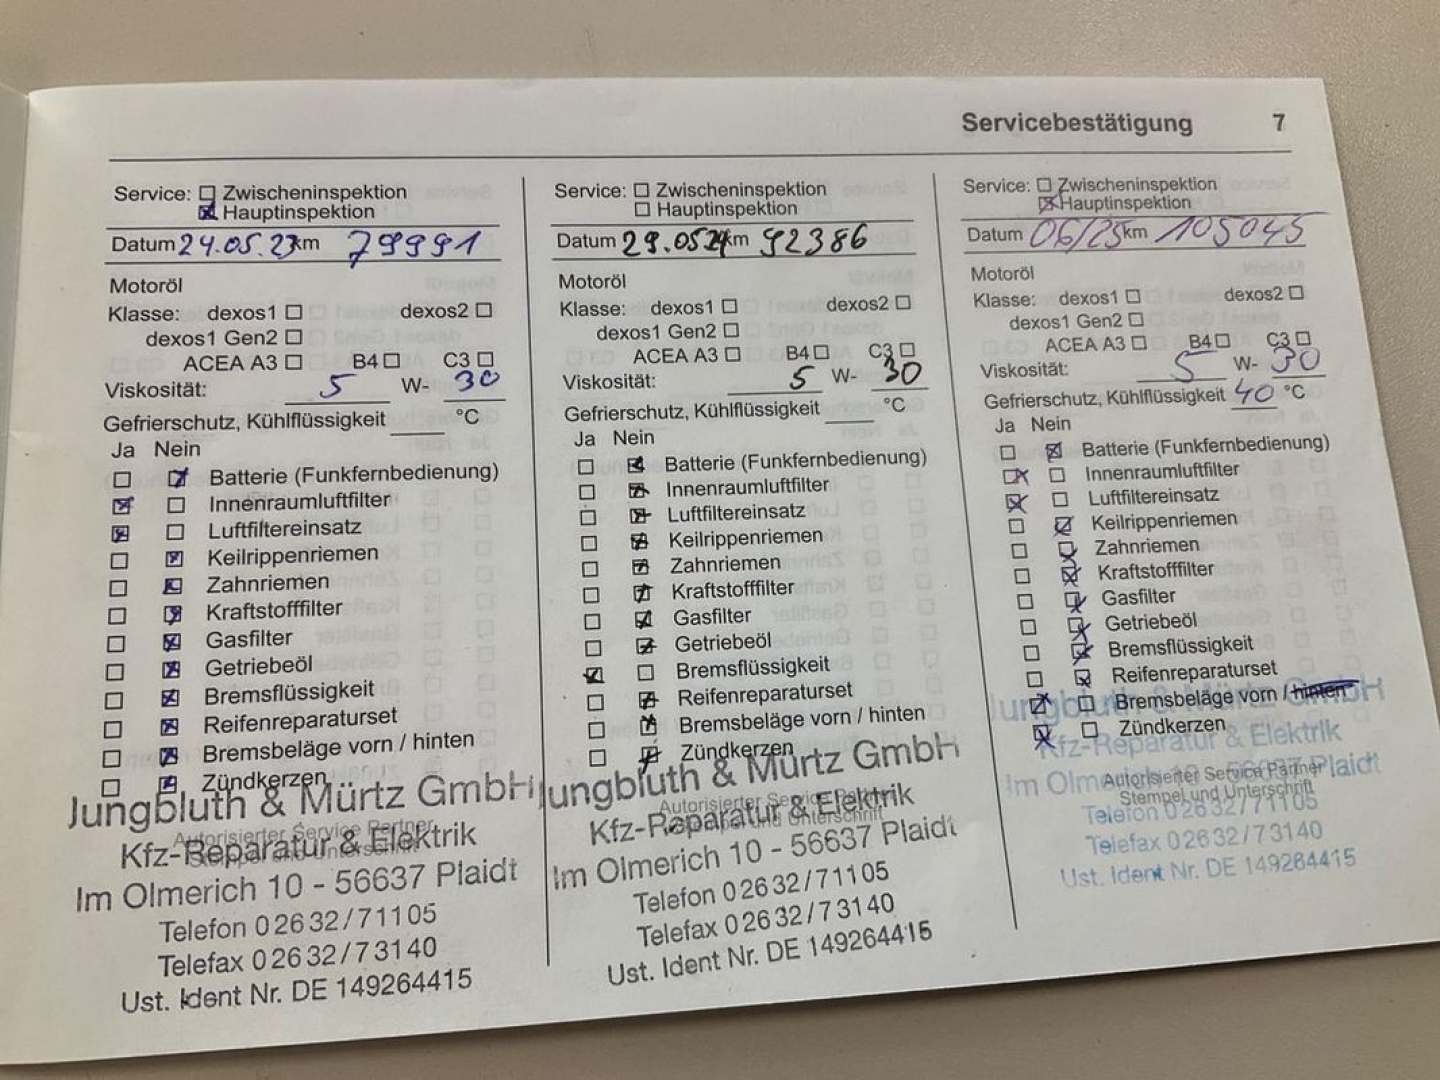 Servicebestätigung 7
Service: ☐ Zwischeninspektion
☒ Hauptinspektion
Datum 24.05.23 km 79991
Motoröl
Klasse: dexos1 ☐ dexos2 ☐
dexos1 Gen2 ☐
ACEA A3 ☐ B4 ☐ C3 ☐
Viskosität: 5 W- 30
Gefrierschutz, Kühlflüssigkeit ____ °C
Ja Nein
☐ ☒ Batterie (Funkfernbedienung)
☒ ☐ Innenraumluftfilter
☒ ☐ Luftfiltereinsatz
☐ ☒ Keilrippenriemen
☐ ☒ Zahnriemen
☐ ☒ Kraftstofffilter
☐ ☒ Gasfilter
☐ ☒ Getriebeöl
☐ ☒ Bremsflüssigkeit
☐ ☒ Reifenreparaturset
☐ ☒ Bremsbeläge vorn / hinten
☐ ☒ Zündkerzen
Jungbluth & Mürtz GmbH
Autorisierter Service Partner
Kfz-Reparatur & Elektrik
Stempel und Unterschrift
Im Olmerich 10 - 56637 Plaidt
Telefon 0 26 32 / 71105
Telefax 0 26 32 / 7 31 40
Ust. Ident Nr. DE 149264415
Service: ☐ Zwischeninspektion
☐ Hauptinspektion
Datum 29.05.24 km 92386
Motoröl
Klasse: dexos1 ☐ dexos2 ☐
dexos1 Gen2 ☐
ACEA A3 ☐ B4 ☐ C3 ☐
Viskosität: 5 W- 30
Gefrierschutz, Kühlflüssigkeit ____ °C
Ja Nein
☐ ☒ Batterie (Funkfernbedienung)
☐ ☒ Innenraumluftfilter
☐ ☒ Luftfiltereinsatz
☐ ☒ Keilrippenriemen
☐ ☒ Zahnriemen
☐ ☒ Kraftstofffilter
☐ ☒ Gasfilter
☐ ☒ Getriebeöl
☒ ☐ Bremsflüssigkeit
☐ ☒ Reifenreparaturset
☐ ☒ Bremsbeläge vorn / hinten
☐ ☒ Zündkerzen
Jungbluth & Mürtz GmbH
Autorisierter Service Partner
Kfz-Reparatur & Elektrik
Stempel und Unterschrift
Im Olmerich 10 - 56637 Plaidt
Telefon 0 26 32 / 71105
Telefax 0 26 32 / 7 31 40
Ust. Ident Nr. DE 149264415
Service: ☐ Zwischeninspektion
☒ Hauptinspektion
Datum 06/25 km 105045
Motoröl
Klasse: dexos1 ☐ dexos2 ☐
dexos1 Gen2 ☐
ACEA A3 ☐ B4 ☐ C3 ☐
Viskosität: 5 W- 30
Gefrierschutz, Kühlflüssigkeit 40 °C
Ja Nein
☐ ☒ Batterie (Funkfernbedienung)
☒ ☐ Innenraumluftfilter
☒ ☐ Luftfiltereinsatz
☐ ☒ Keilrippenriemen
☐ ☒ Zahnriemen
☐ ☒ Kraftstofffilter
☐ ☒ Gasfilter
☐ ☒ Getriebeöl
☐ ☒ Bremsflüssigkeit
☐ ☒ Reifenreparaturset
Jungbluth & Mürtz GmbH
☒ ☐ Bremsbeläge vorn / hinten
☒ ☐ Zündkerzen
Kfz-Reparatur & Elektrik
Im Olmerich 10 - 56637 Plaidt
Autorisierter Service Partner
Stempel und Unterschrift
Telefon 0 26 32 / 71105
Telefax 0 26 32 / 7 31 40
Ust. Ident Nr. DE 149264415